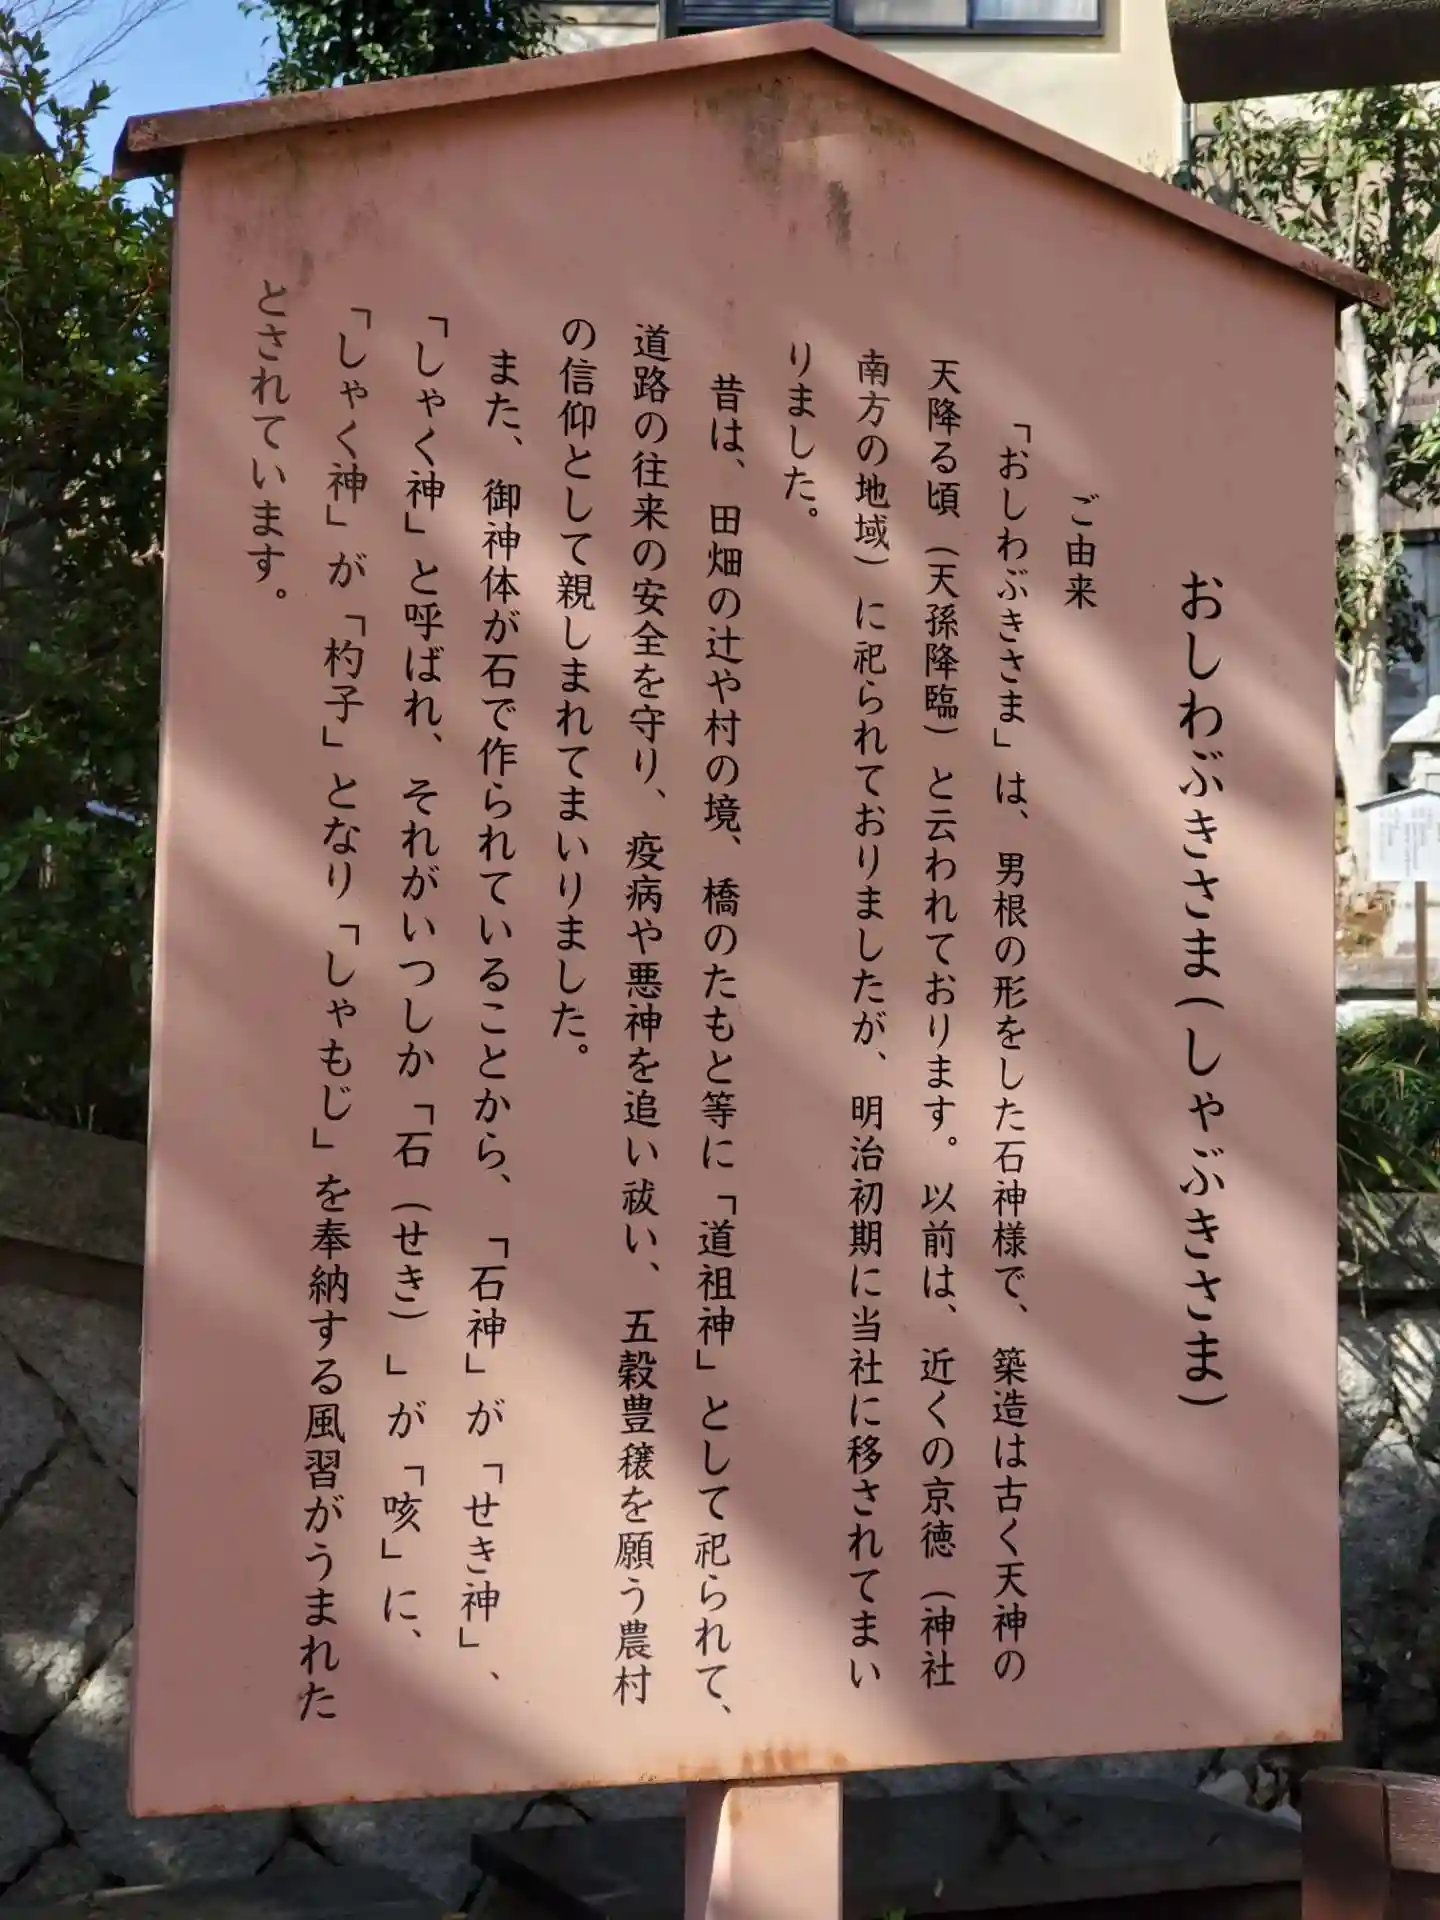 おしわぶきさま(しゃぶきさま)
ご由来
「おしわぶきさま」は、男根の形をした石神様で、築造は古く天神の
天降る頃(天孫降臨)と云われております。以前は、近くの京徳(神社
南方の地域)に祀られておりましたが、明治初期に当社に移されてまい
りました。
昔は、田畑の辻や村の境、橋のたもと等に「道祖神」として祀られて、
道路の往来の安全を守り、疫病や悪神を追い祓い、五穀豊穣を願う農村
の信仰として親しまれてまいりました。
また、御神体が石で作られていることから、「石神」が「せき神」、
「しゃく神」と呼ばれ、それがいつしか「石(せき)」が「咳」に、
「しゃく神」が「杓子」となり「しゃもじ」を奉納する風習がうまれた
とされています。